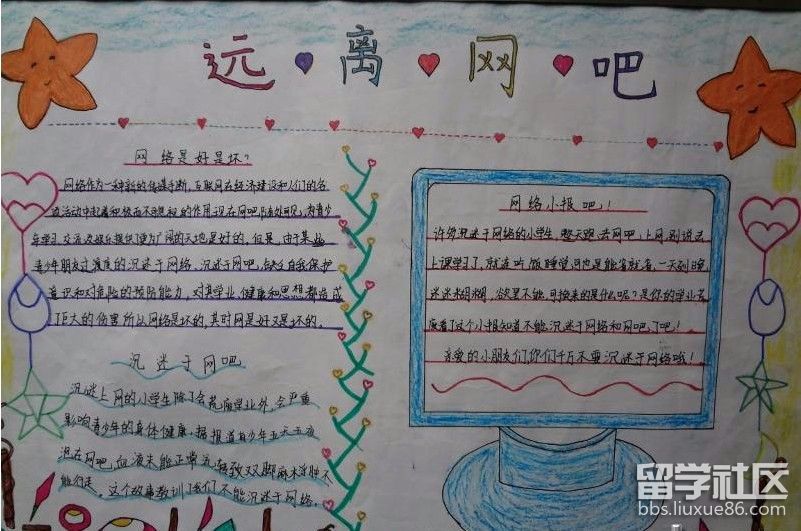 远离网吧
网络是好是坏?
网络作为一种新的传媒手断,互联网在经济建设和人们的各
青少年朋友过渡度的沉迷于网络,沉迷于网吧,缺乏自我保护
意识和对危险的预防能力,对其学业、健康和思想都造成
了巨大的伤害所以网络是坏的,其时网是好又是坏的。
沉迷于网吧
沉迷上网的小学生除了会荒废学业外,会严重
影响青少年的身体健康,据报道有少年五天五夜
泡在网吧,血液未能正常流
能行走。这个故事教训了我们不能沉迷于网络。
网络小报吧!
许多沉迷于网络的小学生,整天跑去网吧上网,别说去
上课学习了,就连吃饭睡觉可也是能省就省,一天到晚
迷迷糊糊,欲罢不能,可换来的是什么呢?是你的学业荒
废看了这个小报知道不能沉迷于网络和网吧了吧!
亲爱的小朋友们,你们千万不要沉迷于网络哦!
留学社区
bbs.liuxue86.com